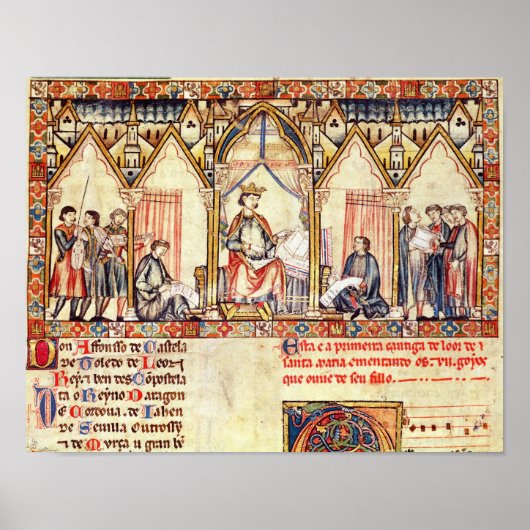 Don Affonsso de Castela
de Toledo de Leon
Rey e ben des Conpostela
ta o Reyno Daragon
De Cordoua de Iahen
de Seuilla outrossy
e de Murça u gran bẽ
Esta e a primeira cantiga de loor de
santa maria ementando os .vii. goyos
que ouue de seu fillo.